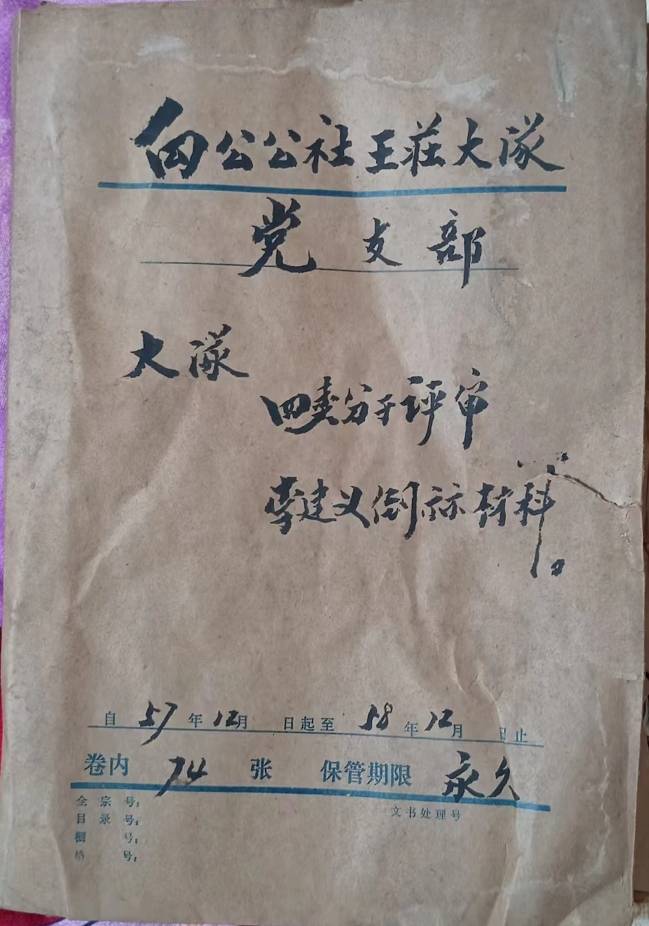 向公公社王莊大隊
党支部
大隊
四类分子评审
李建义倒示材料
自57年12月 日起至58年12月 日止
卷内 74 张 保管期限 永久
全宗号: 文书处理号
目录号:
橱 号:
格 号: